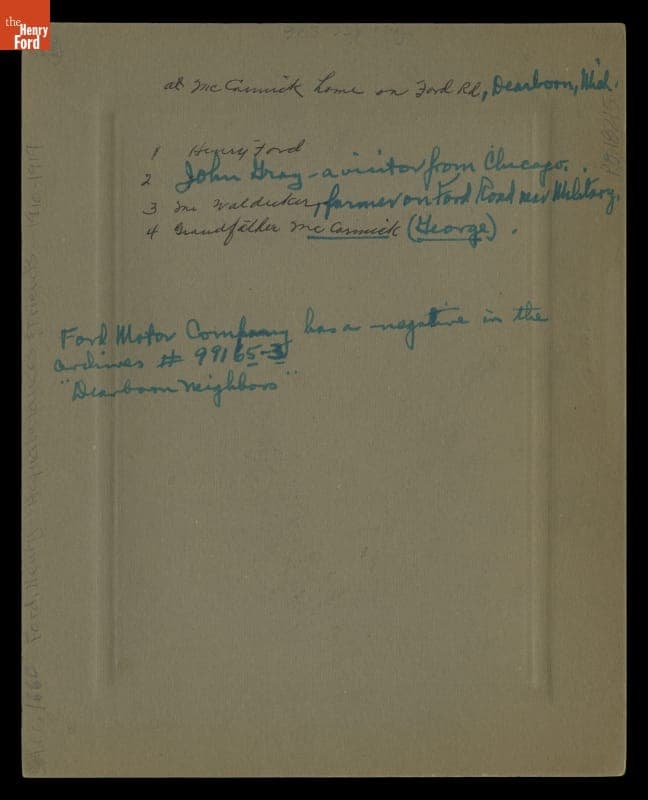 the
Henry
Ford
at McCormick home on Ford Rd, Dearborn, Mich.
1 Henry Ford
2 John Gray - a visitor from Chicago.
3 Mr Waldecker, farmer on Ford Road near Military.
4 Grandfather McCormick (George).
Ford Motor Company has a negative in the
archives # 99165-3
"Dearborn Neighbors"
Ford, Henry - Acquaintances & Friends 1910-1919